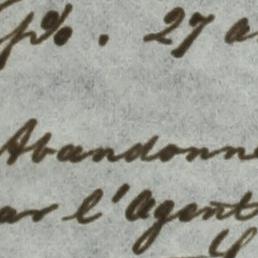 27 a
Abandonne
ar l'Agent